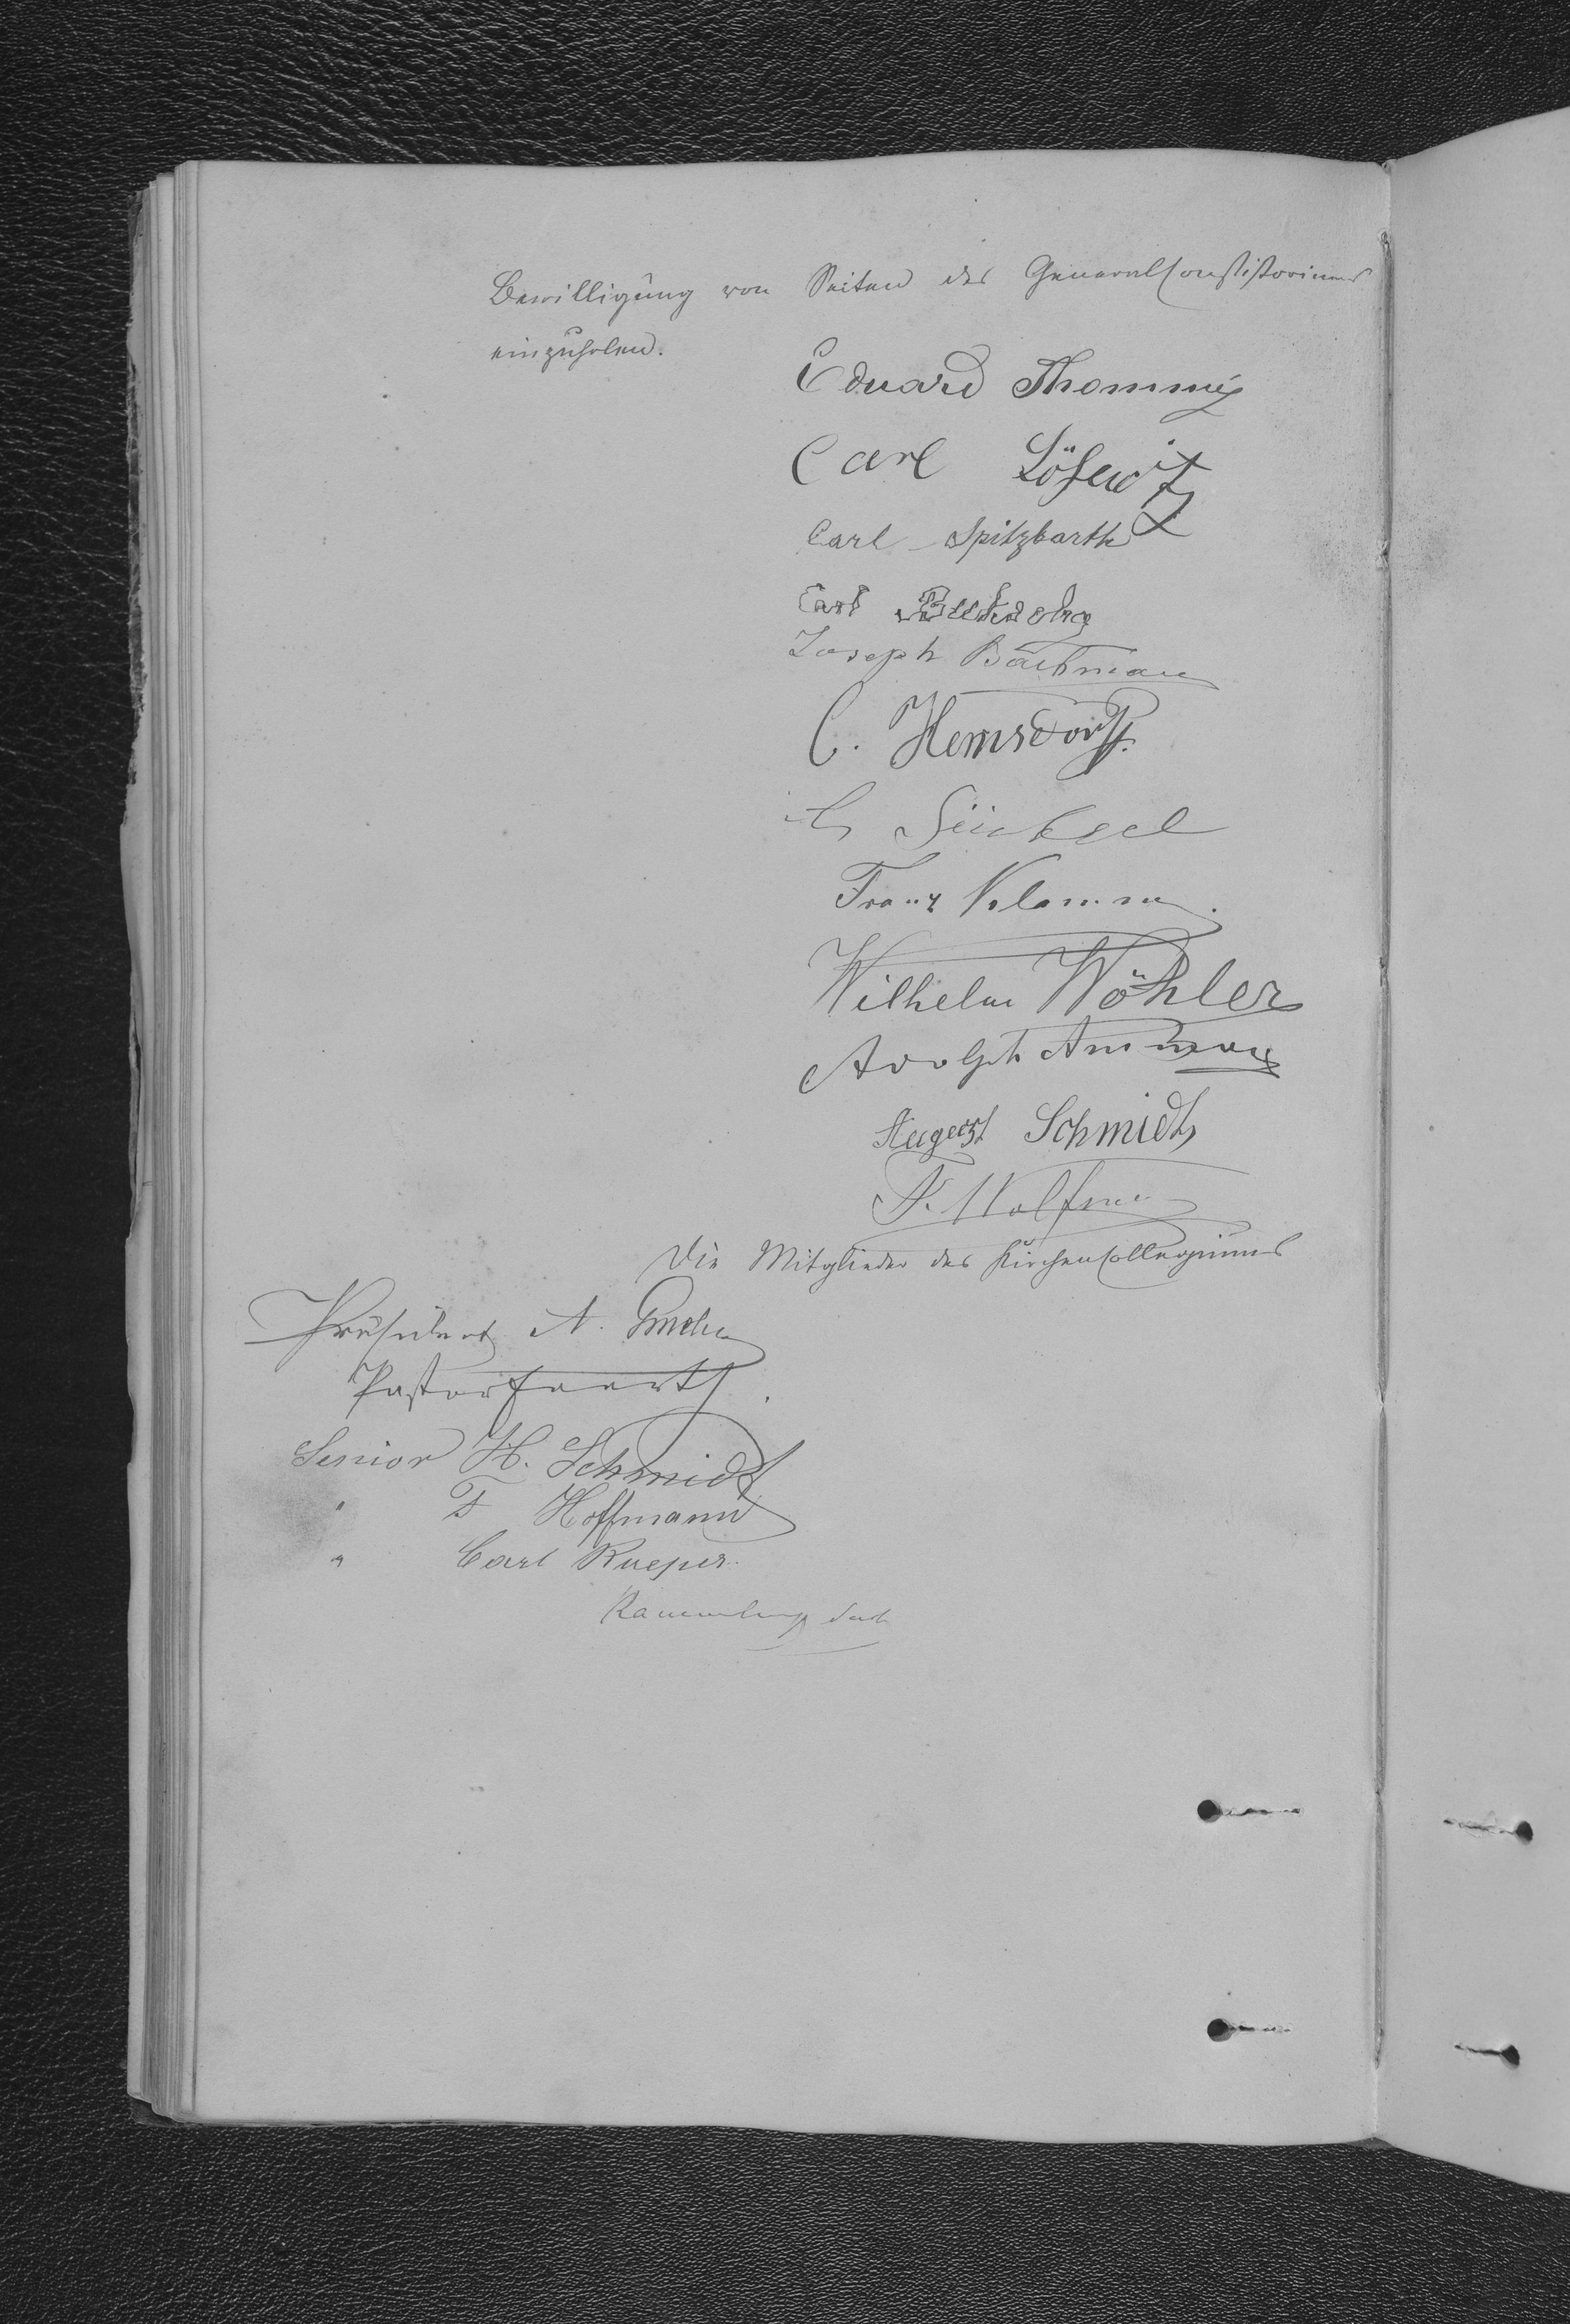 Bewilligung von Seiten des Generalconsistoriums
einzuholen.
Eduard Thommes
Carl Lösewitz
Carl Spitzbarth
Carl
Joseph Bachmann
C. Hemsdorff.
Franz Klamm.
Wilhelm Wöhler
Adolph Amman
August Schmidt
F. Wolfram
Die Mitglieder des Kirchencollegiums
Präsident A.
Pastor
Senior H. Schmidt
" F Hoffmann
" Carl Kueper.